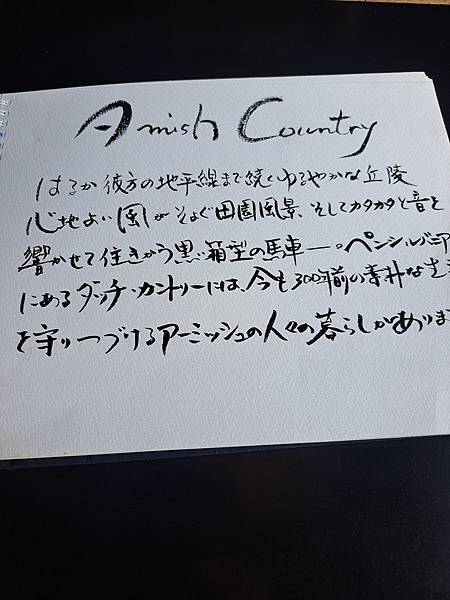 Amish Country
はるか彼方の地平線まで続くゆるやかな丘陵
心地よい風がそよぐ田園風景、そしてカタカタと音を
響かせて往きかう黒い箱型の馬車一。ペンシルバニア
にあるダッチ・カントリーには、今も300年前の素朴な生
を守りつづけるアーミッシュの人々の暮らしがありま